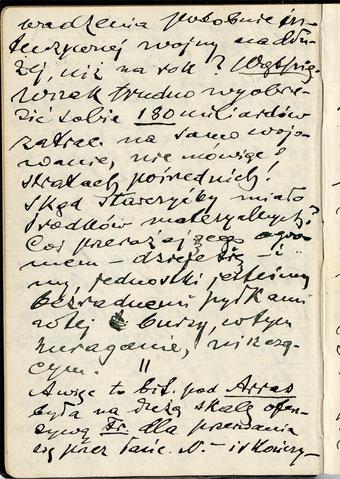 wadzenia podobnie in-
tensywnej wojny nadłu-
żej, niż na rok? Wątpię.
Wszak trudno wyobra-
zić sobie 180 miliardów
zatrac. na samo wojo-
wanie, nie mówiąc o
stratach pośrednich!
Skąd starczyłby miało
środków materyalnych?
Coś przerażającego ogro-
mem – dzieje się – i
my, jednostki, jesteśmy
bezradnemi pyłkami
w tej burzy, w tym
huraganie, niszczą-
cym. "
A więc to bit. pod Arras
była na dużą skalę ofen-
zywą Fr. dla przerwania
się przez łańc. N. – i skończy-